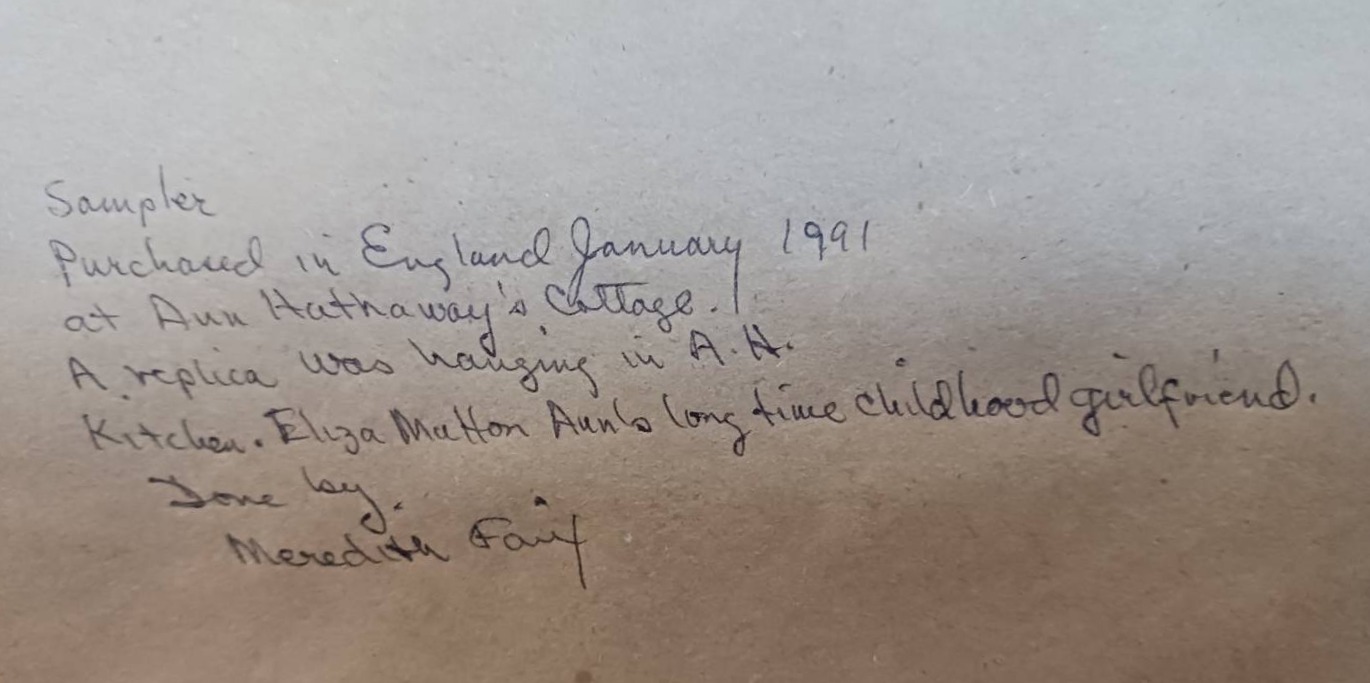 Sampler
Purchased in England January 1991
at Ann Hathaway's Cottage.
A replica was hanging in A.H.
Kitchen. Eliza Mutton Ann's long time childhood girlfriend.
Done by.
Meredith